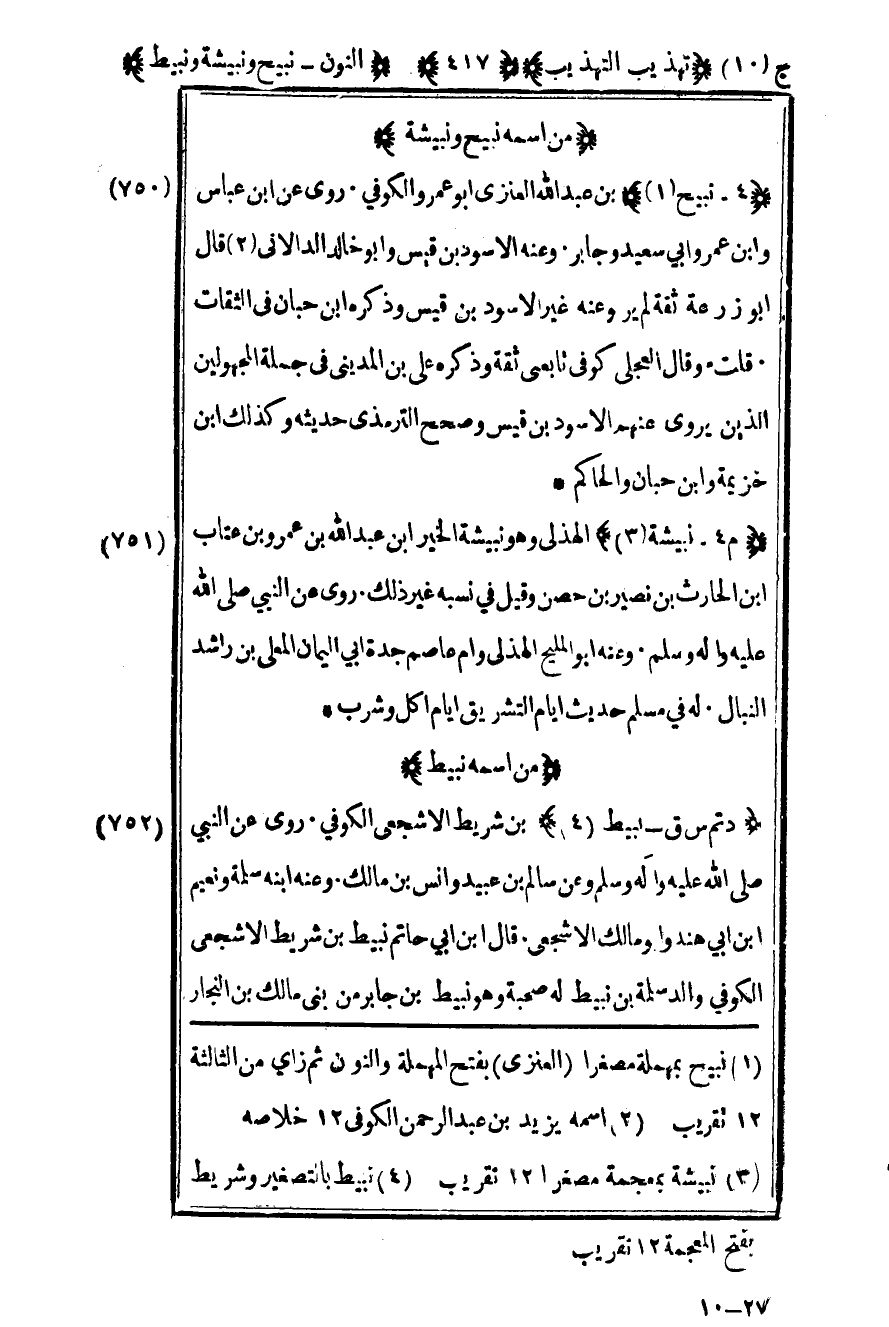 ج (١٠) ﴿تهذيب التهذيب﴾ ﴿٤١٧﴾ ﴿النون ـ نبيح ونبيشة ونبيط﴾
﴿من اسمه نبيح ونبيشة﴾
﴿٤ ـ نبيح (١)﴾ بن عبدالله العنزى ابو عمرو الكوفي ۰ روى عن ابن عباس (٧٥٠)
وابن عمر وابي سعيد وجابر ۰ وعنه الاسود بن قيس وابو خالد الدالانى (٢) قال
ابو زرعة ثقة لم يرو عنه غير الاسود بن قيس وذكره ابن حبان فى الثقات
۰ قلت ۰ وقال العجلى كوفى تابعى ثقة وذكره على بن المدينى فى جملة المجهولين
الذين يروى عنهم الاسود بن قيس وصحح الترمذى حديثه وكذلك ابن
خزيمة وابن حبان والحاكم *
﴿م٤ ـ نبيشة (٣)﴾ الهذلى وهو نبيشة الخير ابن عبدالله بن عمرو بن عتاب (٧٥١)
ابن الحارث بن نصير بن حصن وقيل في نسبه غير ذلك ۰ روى عن النبي صلى الله
عليه وآله وسلم ۰ وعنه ابو المليح الهذلى وام عاصم جدة ابي اليمان المعلى بن راشد
النبال ۰ له في مسلم حديث ايام التشريق ايام اكل وشرب *
﴿من اسمه نبيط﴾
﴿دتم س ق ـ نبيط (٤)﴾ بن شريط الاشجعى الكوفي ۰ روى عن النبي (٧٥٢)
صلى الله عليه وآله وسلم وعن سالم بن عبيد وانس بن مالك ۰ وعنه ابنه سلمة ونعيم
ابن ابي هند وابو مالك الاشجعى ۰ قال ابن ابي حاتم نبيط بن شريط الاشجعى
الكوفي والد سلمة بن نبيط له صحبة وهو نبيط بن جابر من بنى مالك بن النجار
(١) نبيح بمهملة مصغرا (العنزى) بفتح المهملة والنون ثم زاي من الثالثة
١٢ تقريب (٢) اسمه يزيد بن عبدالرحمن الكوفى ١٢ خلاصه
(٣) نبيشة بمعجمة مصغرا ١٢ تقريب (٤) نبيط بالتصغير وشريط
بفتح المعجمة ١٢ تقريب
٢٧–١٠